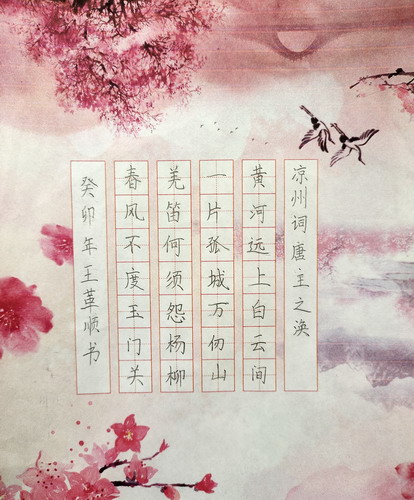 凉州词唐王之涣
黄河远上白云间
一片孤城万仞山
羌笛何须怨杨柳
春风不度玉门关
癸卯年王革顺书